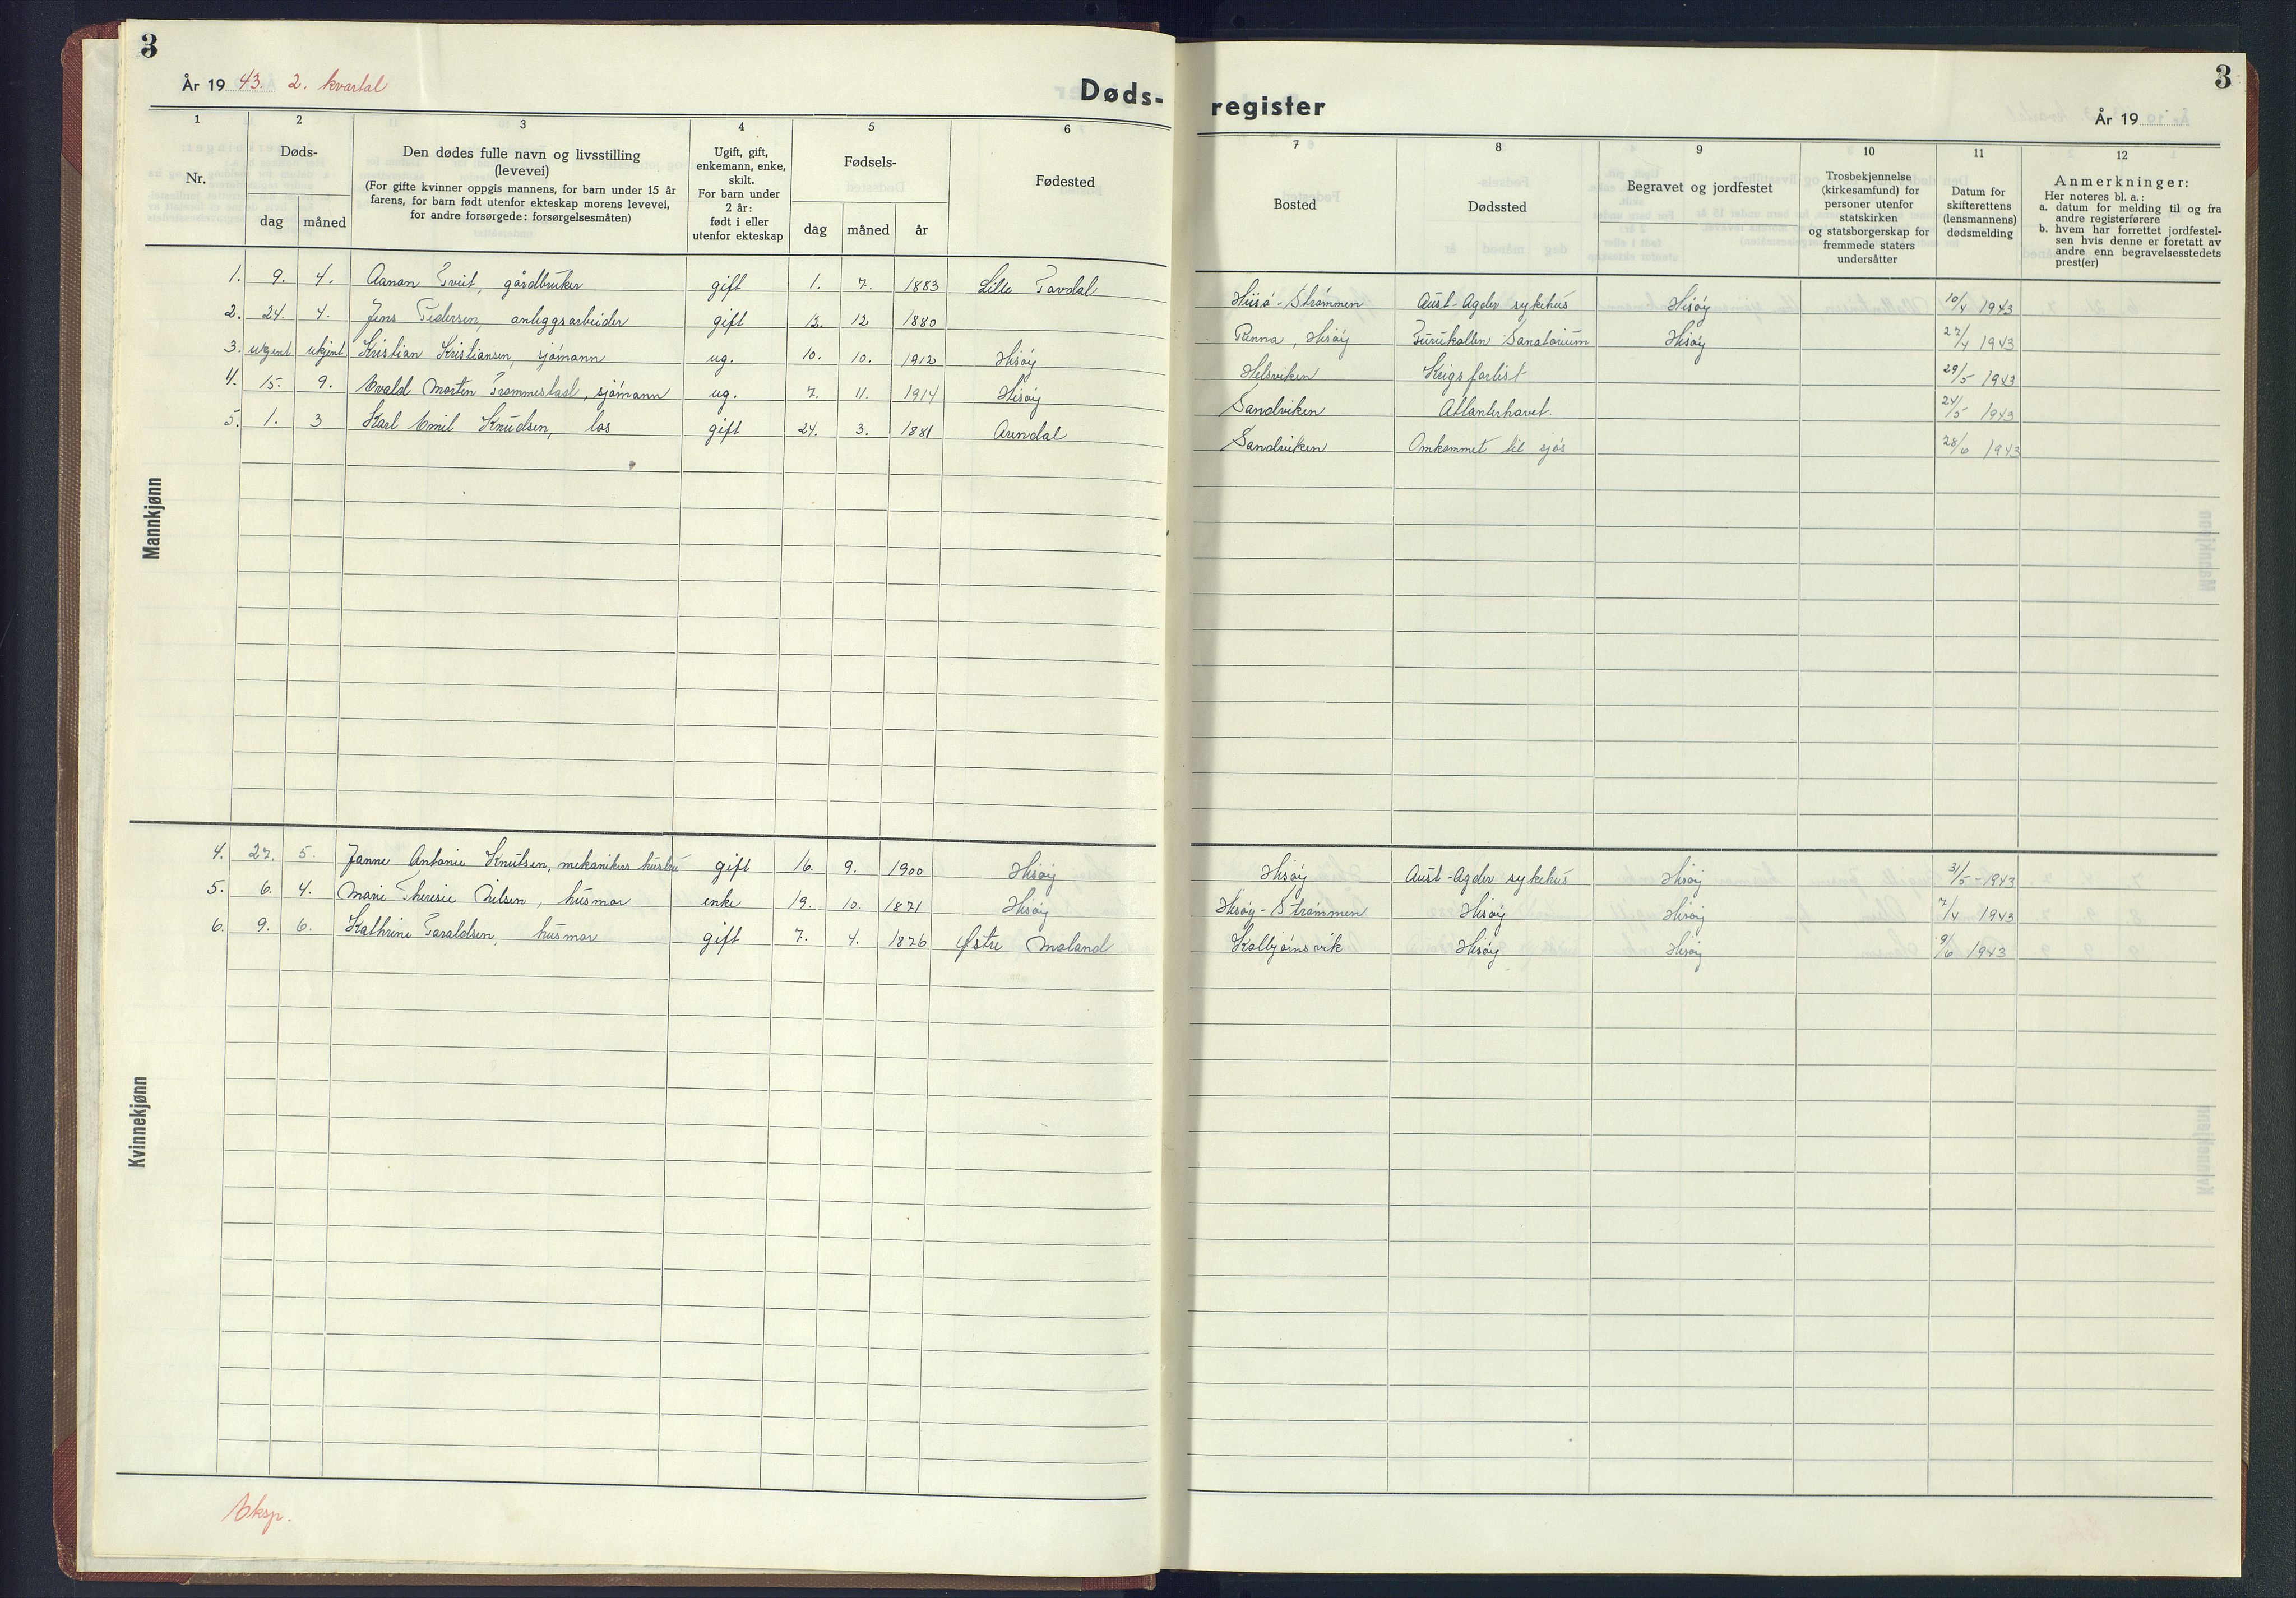 3
År 1943. 2. kvartal
Døds-
1 2 3 4 5 6
Nr.
Døds-
dag måned
Den dødes fulle navn og livsstilling
(levevei)
(For gifte kvinner oppgis mannens, for barn under 15 år
farens, for barn født utenfor ekteskap morens levevei,
for andre forsørgede: forsørgelsesmåten)
Ugift, gift,
enkemann, enke,
skilt.
For barn under
2 år:
født i eller
utenfor ekteskap
Fødsels-
dag måned år
Fødested
Mannkjønn
1. 9. 4. Aanan Tveit, gårdbruker gift 1. 7. 1883 Lille Tovdal
2. 24. 4. Jens Pedersen, anleggsarbeider gift 12. 12 1880
3. ukjent ukjent Kristian Kristiansen, sjømann ug. 10. 10. 1912 Hisøy
4. 15. 9. Evald Morten Trommestad, sjømann ug. 7. 11. 1914 Hisøy
5. 1. 3 Karl Emil Knudsen, los gift 24. 3. 1881 Arendal
Kvinnekjønn
4. 27. 5. Janne Antonie Knutsen, mekanikers hustru gift 16. 9. 1900 Hisøy
5. 6. 4. Marie Theresie Nilsen, husmor enke 19. 10. 1871 Hisøy
6. 9. 6. Kathrine Taraldsen, husmor gift 7. 4. 1876 Østre Moland
Eksp.
3
register
År 19
7 8 9 10 11 12
Bosted
Dødssted
Begravet og jordfestet
Trosbekjennelse
(kirkesamfund) for
personer utenfor
statskirken
og statsborgerskap for
fremmede staters
undersåtter
Datum for
skifterettens
(lensmannens)
dødsmelding
Anmerkninger:
Her noteres bl. a.:
a. datum for melding til og fra
andre registerførere
b. hvem har forrettet jordfestel-
sen hvis denne er foretatt av
andre enn begravelsesstedets
prest(er)
Hisø-Strømmen Aust-Agder sykehus Hisøy 10/4 1943
Hisøy Furukollen Sanatorium Hisøy 27/4 1943
Helsviken Krigsforlist 29/5 1943
Sandviken Atlanterhavet. 24/5 1943
Sandviken Omkommet til sjøs 28/6 1943
Hisøy Aust-Agder sykehus Hisøy 31/5-1943
Hisøy-Strømmen Hisøy Hisøy 7/4 1943
Kolbjørnsvik Hisøy Hisøy 9/6 1943